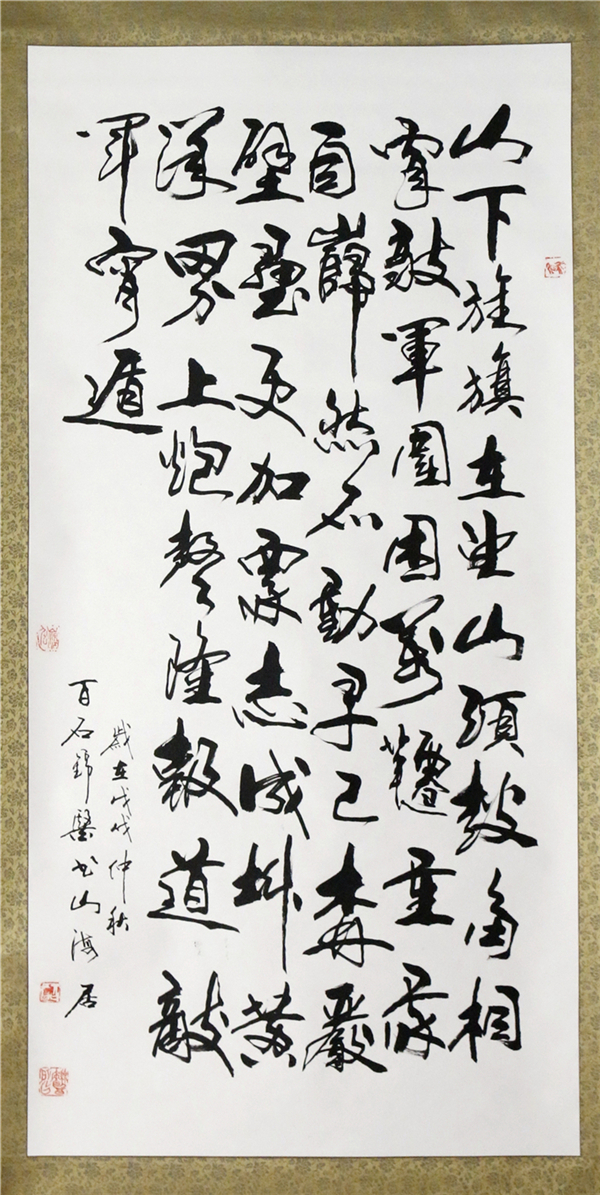 山下旌旗在望山頭鼓角相
聞敵軍圍困萬韆重我
自巋然不動早已森嚴
壁壘更加眾志成城黄
洋界上炮聲隆報道敵
軍宵遁
歲在戊戌仲秋
百石书山海居